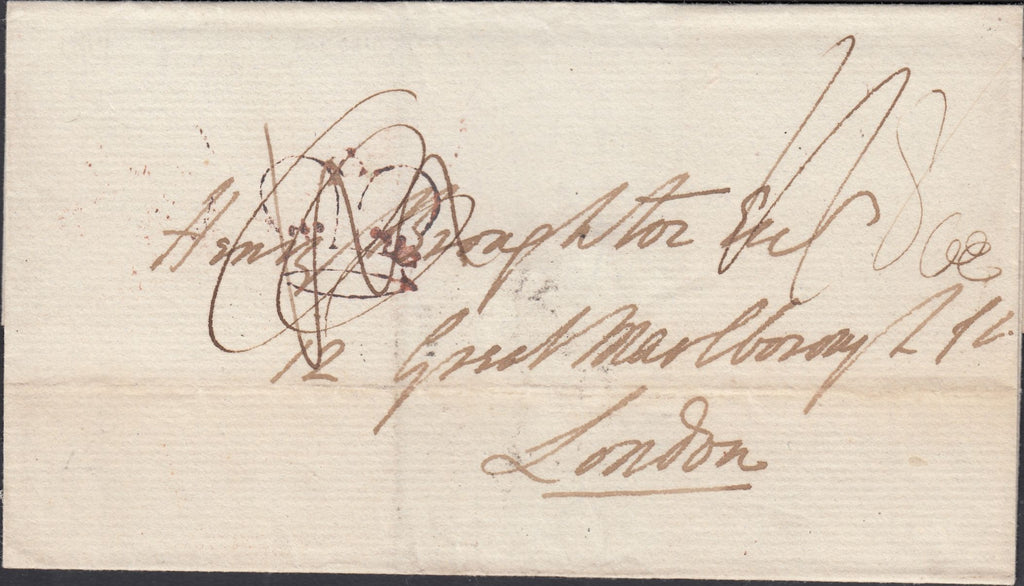 Henry Broughton Esq
12 Great Marlborough St
London